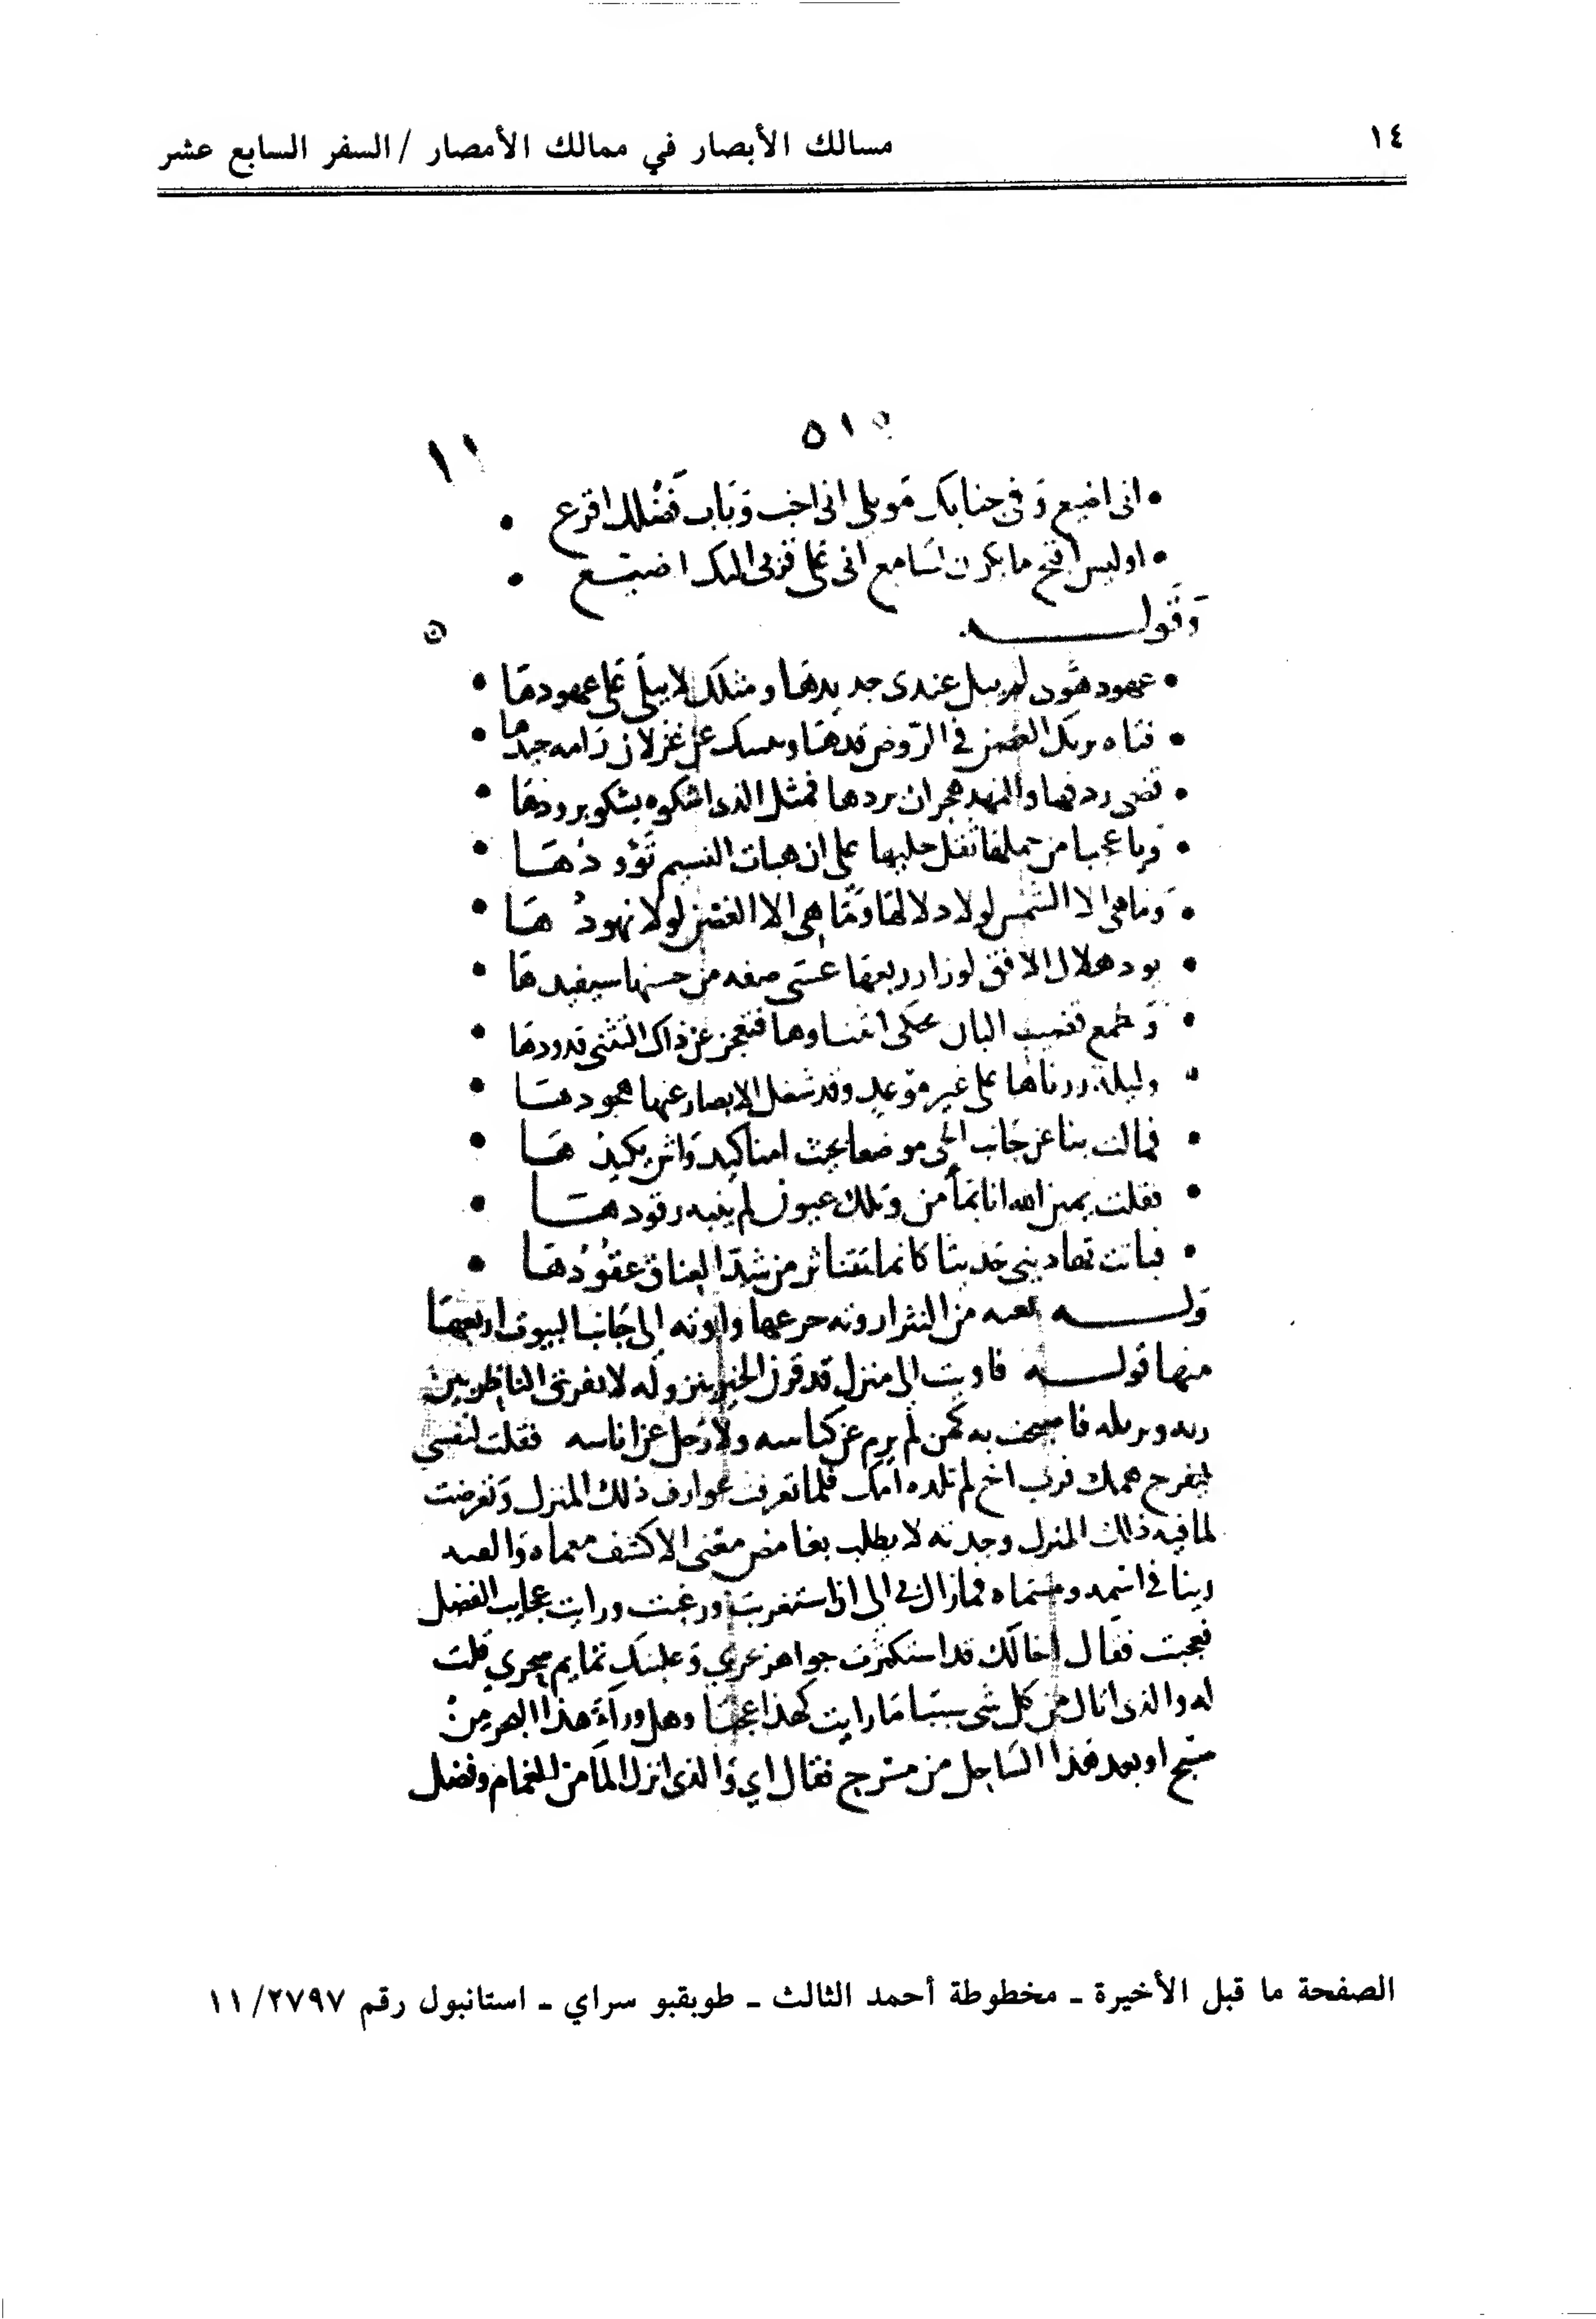 ١٤
مسالك الأبصار في ممالك الأمصار / السفر السابع عشر
٥١٥
١١
• انى اضيع وفى جنابك مويلى انى اخب وباب فضلك اقرع •
• اوليس اقبح ما يكرن لسامع انى على قربى اليك اضيع •
وقوله
• عهود هوى لم يبل عندى جديدها ومثلك لا يبلى على عهودها •
• فتاه يريك الغصن فى الروض قدها ويمسك عن غزلان رامه جيدها •
• ردفها والنهد هجران بردها فمثل الذى اشكوه يشكو برودها •
• ويا عجبا من حملها ثقل حليها على ان هبات النسيم تؤودها •
• وما هى الا الشمس لولا دلالها وما هى الا الغصن لولا نهودها •
• يود هلال الافق لو زار ربعها عسى صفه من حسنها سيفيدها •
• وتطمع تقضيب البان يحكى فتعجز عن ذاك التثنى قدودها •
• وليلة زرناها على غير موعد وقد شغل الابصار عنها هجودها •
• فمالت بنا عن جانب الحى موضعا بحيث امنا كيد واش يكيدها •
• فقلت يمين الله انا بمأمن وتلك عيون لم ينبه رقودها •
• فباتت تهادينى حديثا كانما تتناثر من شد العناق عقودها •
وله من النثر اروته جرعها واوته الى جانب البيوت اربعها
منها قوله فاويت الى منزل قد قرن الخير بنزوله لا يفرق الناظر بين
ربه ونزيله فاصبحت به كمن لم يرم عن كناسه ولا رحل عن اناسه فقلت لنفسي
ليفرح همك فرب اخ لم تلده امك فلما تعرفت عوارف ذلك المنزل وتعرضت
لما فيه ذلك المنزل وجدته لا يطلب بغامض معنى الا كشف معماه والعبه
بينا فى اسمه ومسماه فما زال بى الى ان استغربت ورغبت ورايت عجايب الفضل
فعجبت فقال اخالك قد استكثرت جواهر بحري وعلبتك تمايم سحري قلت
له والذى اتاك من كل شى سببا ما رايت كهذا عجبا وهل وراء هذا البحر من
مسبح او بعد هذا الساحل من مسرح فقال اي والذى انزل الما من الغمام وفضل
الصفحة ما قبل الأخيرة ـ مخطوطة أحمد الثالث ـ طوبقبو سراي ـ استانبول رقم ٢٧٩٧/١١